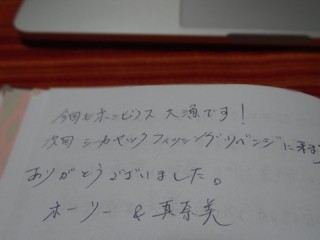 今回もホンビノス 大漁です！
次回 シーカヤックフィッシングリベンジに来ます
ありがとうございました。
ホーリー & 真奈美